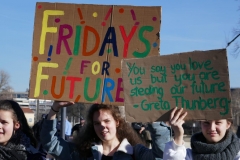 FRIDAYS
FOR
FUTURE
You say you love
us but you are
steeling our future
- Greta Thunberg